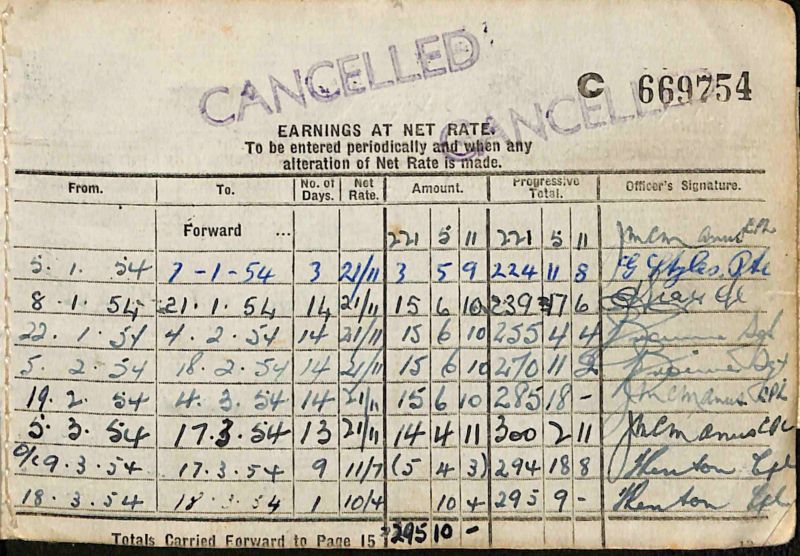 CANCELLED
C 669754
CANCELLED
EARNINGS AT NET RATE.
To be entered periodically and when any
alteration of Net Rate is made.
From. To. No. of Days. Net Rate. Amount. Progressive Total. Officer's Signature.
Forward ... 221 5 11 221 5 11 JMcManus CPL
5. 1. 54 7-1-54 3 21/11 3 5 9 224 11 8 Styles Pte
8. 1. 54 21. 1. 54 14 21/11 15 6 10 239 17 6
22. 1. 54 4. 2. 54 14 21/11 15 6 10 255 4 4 Sgt
5. 2. 54 18. 2. 54 14 21/11 15 6 10 270 11 2 Sgt
19. 2. 54 4. 3. 54 14 21/11 15 6 10 285 18 - JMcManus CPL
5. 3. 54 17. 3. 54 13 21/11 14 4 11 300 2 11 JMcManus CPL
9. 3. 54 17. 3. 54 9 11/7 (5 4 3) 294 18 8 Henton Cpl
18. 3. 54 18. 3. 54 1 10/4 10 4 295 9 - Henton Cpl
Totals Carried Forward to Page 15 295 10 -